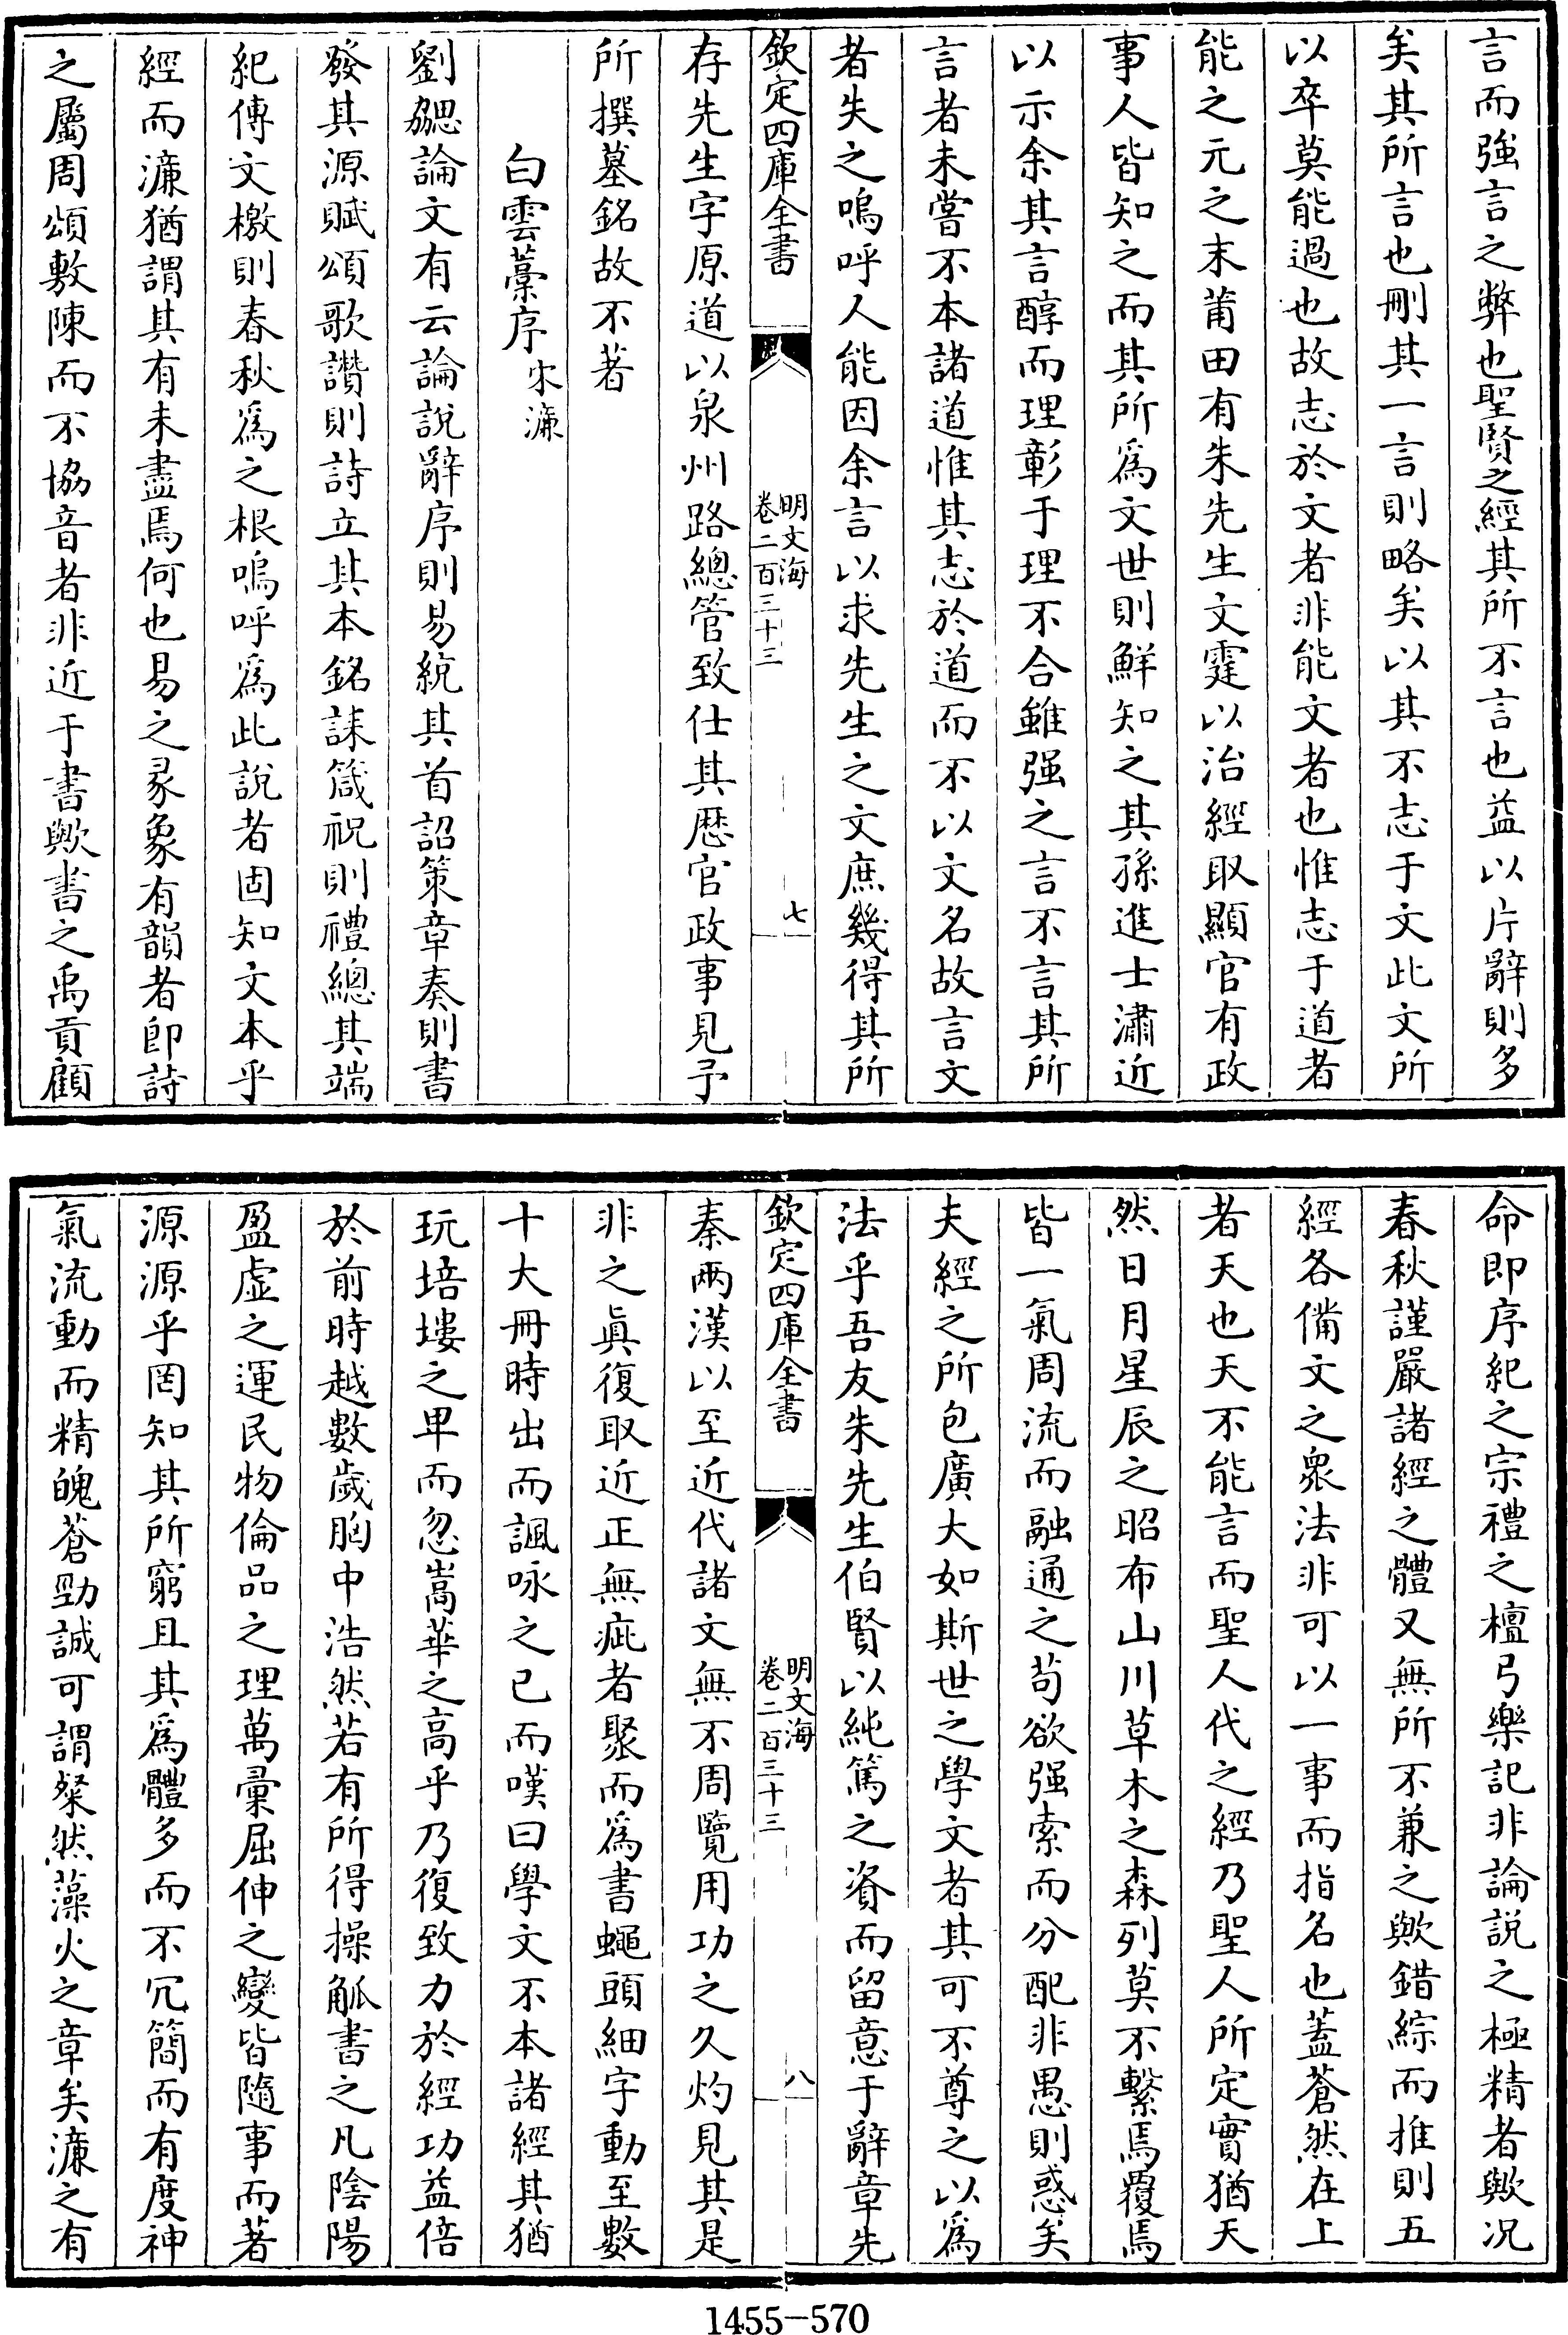 言而強言之弊也聖賢之經其所不言也益以片辭則多
矣其所言也刪其一言則略矣以其不志于文此文所
以卒莫能過也故志於文者非能文者也惟志于道者
能之元之末莆田有朱先生文霆以治經取顯官有政
事人皆知之而其所爲文世則鮮知之其孫進士潚近
以示余其言醇而理彰于理不合雖强之言不言其所
言者未嘗不本諸道惟其志於道而不以文名故言文
者失之嗚呼人能因余言以求先生之文庶幾得其所
欽定四庫全書
明文海
卷二百三十三
七
存先生字原道以泉州路總管致仕其歷官政事見予
所撰墓銘故不著
白雲藁序 宋濂
劉勰論文有云論說辭序則易統其首詔策章奏則書
發其源賦頌歌讚則詩立其本銘誄箴祝則禮總其端
紀傳文檄則春秋爲之根嗚呼爲此說者固知文本乎
經而濂猶謂其有未盡焉何也易之彖象有韻者即詩
之屬周頌敷陳而不協音者非近于書歟書之禹貢顧
命即序紀之宗禮之檀弓樂記非論說之極精者歟况
春秋謹嚴諸經之體又無所不兼之歟錯綜而推則五
經各備文之衆法非可以一事而指名也蓋蒼然在上
者天也天不能言而聖人代之經乃聖人所定實猶天
然日月星辰之昭布山川草木之森列莫不繫焉覆焉
皆一氣周流而融通之苟欲强索而分配非愚則惑矣
夫經之所包廣大如斯世之學文者其可不尊之以爲
法乎吾友朱先生伯賢以純篤之資而留意于辭章先
欽定四庫全書
明文海
卷二百三十三
八
秦兩漢以至近代諸文無不周覽用功之久灼見其是
非之眞復取近正無疵者聚而爲書蠅頭細字動至數
十大冊時出而諷咏之已而嘆曰學文不本諸經其猶
玩培塿之卑而忽嵩華之高乎乃復致力於經功益倍
於前時越數歲胸中浩然若有所得操觚書之凡陰陽
盈虛之運民物倫品之理萬彙屈伸之變皆隨事而著
源源乎罔知其所窮且其爲體多而不冗簡而有度神
氣流動而精魄蒼勁誠可謂粲然藻火之章矣濂之有
1455-570